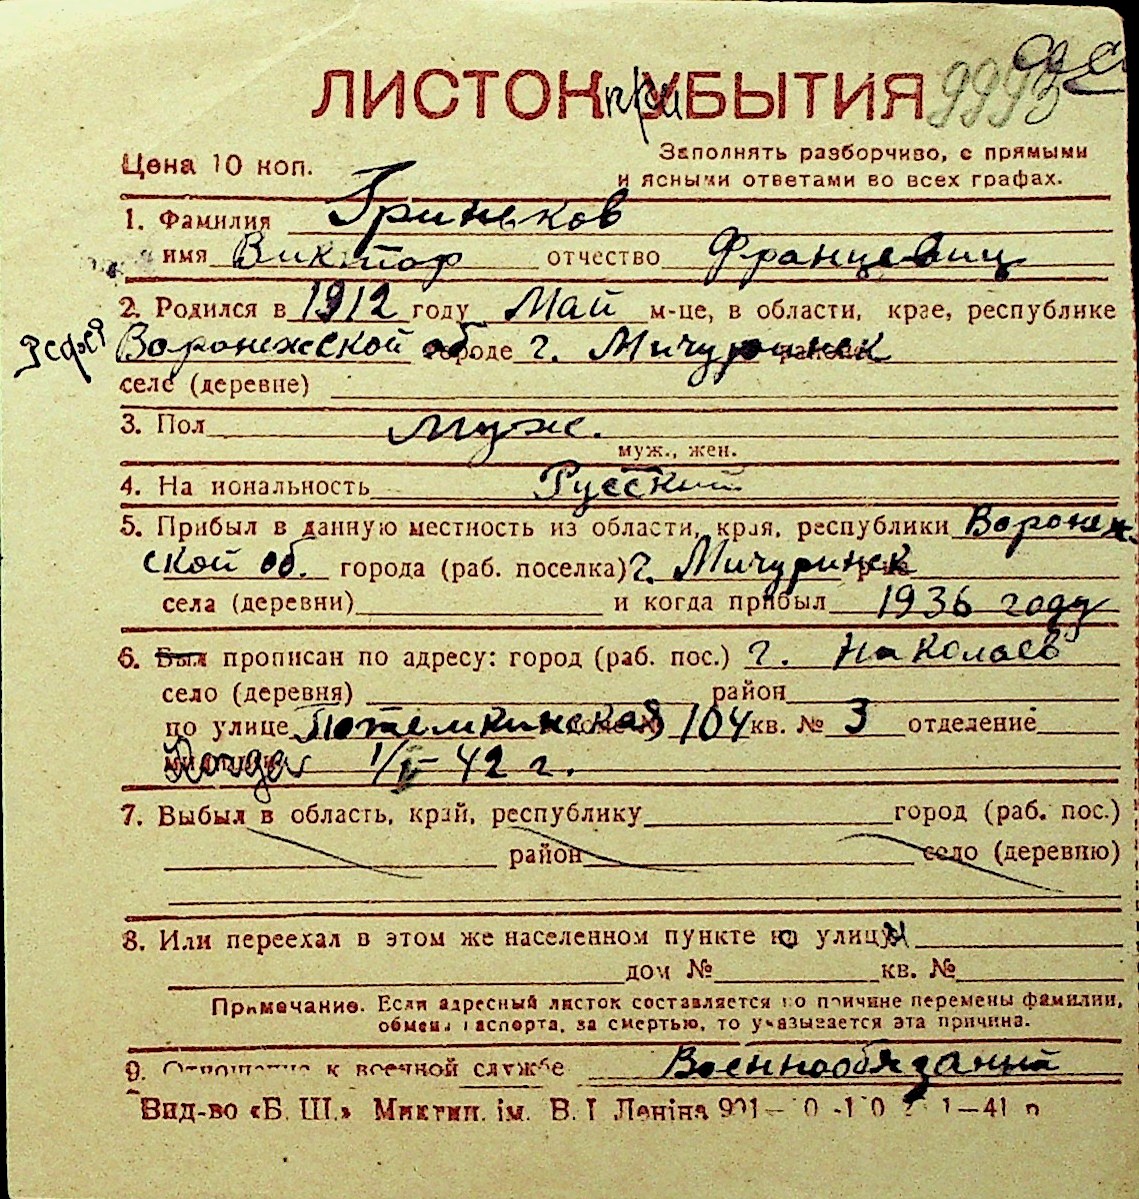 ЛИСТОК при УБЫТИЯ
Цена 10 коп.
Заполнять разборчиво, с прямыми
и ясными ответами во всех графах.
1. Фамилия Гриньков
имя Виктор отчество Францевич
2. Родился в 1912 году Май м-це, в области, крае, республике
РСФСР Воронежской об. городе г. Мичуринск
селе (деревне)
3. Пол муж.
муж., жен.
4. На иональность Русский
5. Прибыл в данную местность из области, края, республики Воронеж
ской об. города (раб. поселка) г. Мичуринск
села (деревни) и когда прибыл 1936 году
6. Был прописан по адресу: город (раб. пос.) г. Николаев
село (деревня) район
по улице Потемкинская 104 кв. № 3 отделение
42 г.
7. Выбыл в область, край, республику город (раб. пос.)
район село (деревню)
8. Или переехал в этом же населенном пункте на улицу
дом № кв. №
Примечание. Если адресный листок составляется по причине перемены фамилии,
обмена паспорта, за смертью, то указывается эта причина.
9. Отношение к военной службе Военнообязаный
Вид-во «Б. Ш.» Миктип. ім. В. І Леніна